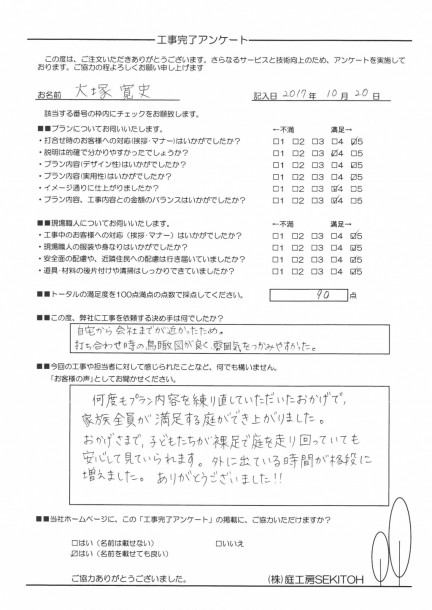 工事完了アンケート
この度は、ご注文いただきありがとうございます。さらなるサービスと技術向上のため、アンケートを実施して
おります。ご協力の程よろしくお願い申し上げます
お名前 大塚 寛史 記入日 2017年 10月 20日
該当する番号の枠内にチェックをお願致します。
■■プランについてお伺いいたします。 ←不満 満足→
・打合せ時のお客様への対応(挨拶・マナー)はいかがでしたか? □1 □2 □3 □4 ☑5
・説明は的確で分かりやすかったでしょうか? □1 □2 □3 ☑4 □5
・プラン内容(デザイン性)はいかがでしたか? □1 □2 □3 □4 ☑5
・プラン内容(実用性)はいかがでしたか? □1 □2 □3 □4 ☑5
・イメージ通りに仕上がりましたか? □1 □2 □3 ☑4 □5
・プラン内容、工事内容との金額のバランスはいかがでしたか? □1 □2 □3 ☑4 □5
■■現場職人についてお伺いいたします。 ←不満 満足→
・工事中のお客様への対応(挨拶・マナー)はいかがでしたか? □1 □2 □3 □4 ☑5
・現場職人の服装や身なりはいかがでしたか? □1 □2 □3 □4 ☑5
・安全面の配慮や、近隣住民への配慮は行き届いていましたか? □1 □2 □3 □4 ☑5
・道具・材料の後片付けや清掃はしっかりできていましたか? □1 □2 □3 □4 ☑5
■■トータルの満足度を100点満点の点数で採点してください。 90 点
■■この度、弊社に工事を依頼する決め手は何でしたか?
自宅から会社までが近かったため。
打ち合わせ時の鳥瞰図が良く、雰囲気をつかみやすかった。
■■今回の工事や担当者に対して感じられたことなど、何でも構いません。
「お客様の声」としてお聞かせください。
何度もプラン内容を練り直していただいたおかげで、
家族全員が満足する庭ができ上がりました。
おかげさまで、子どもたちが裸足で庭を走り回っていても
安心して見ていられます。外に出ている時間が格段に
増えました。ありがとうございました!!
■■当社ホームページに、この「工事完了アンケート」の掲載に、ご協力いただけますか?
□はい(名前は載せない) □いいえ
☑はい(名前を載せても良い)
ご協力ありがとうございました。 (株)庭工房SEKITOH